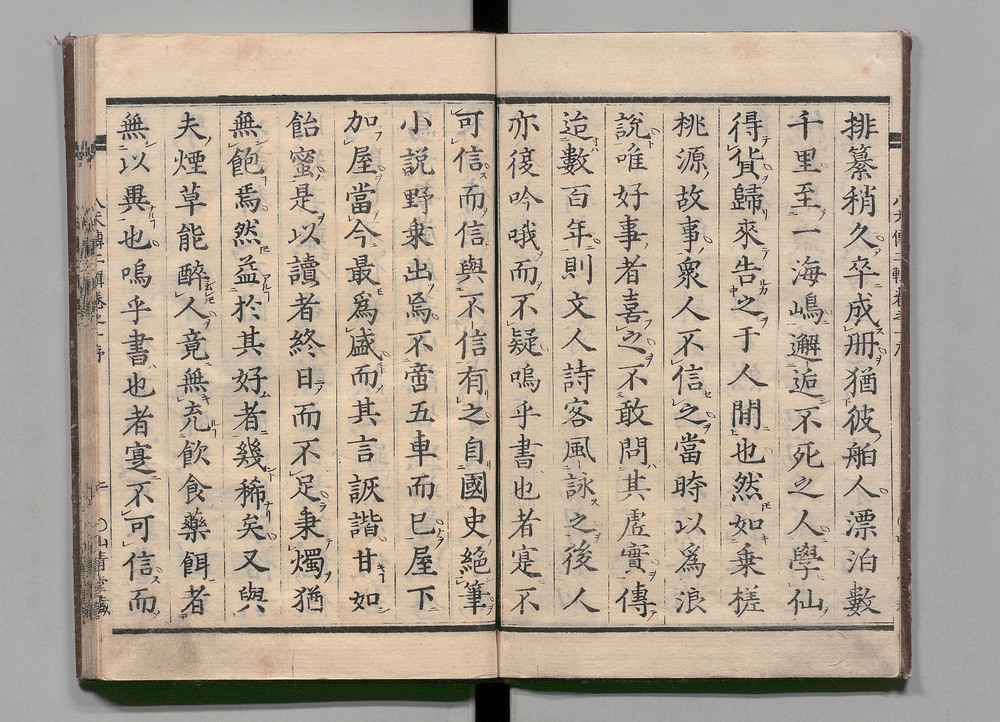 排纂稍久卒成册猶彼舶人漂泊數
千里至一海嶋邂逅不死之人學仙
得貨歸來告之于人間也然如乗槎
桃源故事衆人不信之當時以爲浪
說唯好事者喜之不敢問其虛實傳
迨數百年則文人詩客風詠之後人
亦復吟哦而不疑嗚乎書也者寔不
可信而信與不信有之自國史絕筆
小說野乘出焉不啻五車而已屋下
加屋當今最爲盛而其言詼諧甘如
飴蜜是以讀者終日而不足秉燭猶
無飽焉然益於其好者幾稀矣又與
夫煙草能醉人竟無充飲食藥餌者
無以異也嗚乎書也者寔不可信而
八犬傳二輯卷之一序